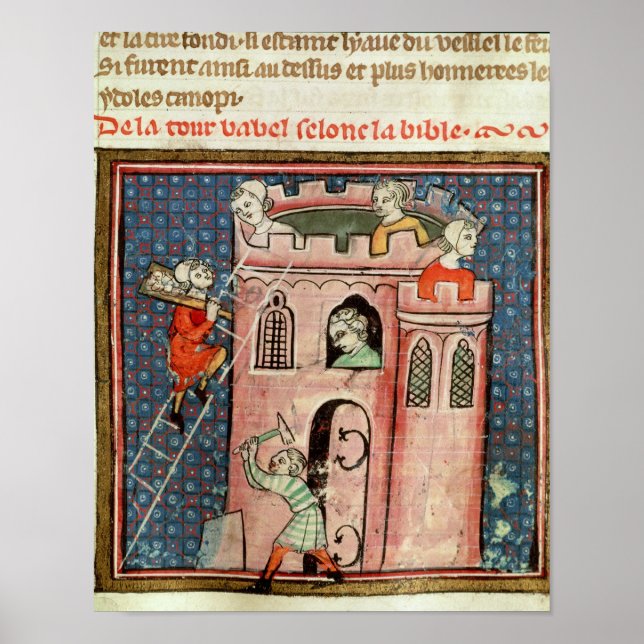 et la cire fondi · si estaint lyaue du vessiel le feu
Si furent ainsi au dessus et plus honnerees les
ydoles canopi ·
De la tour babel selonc la bible ·